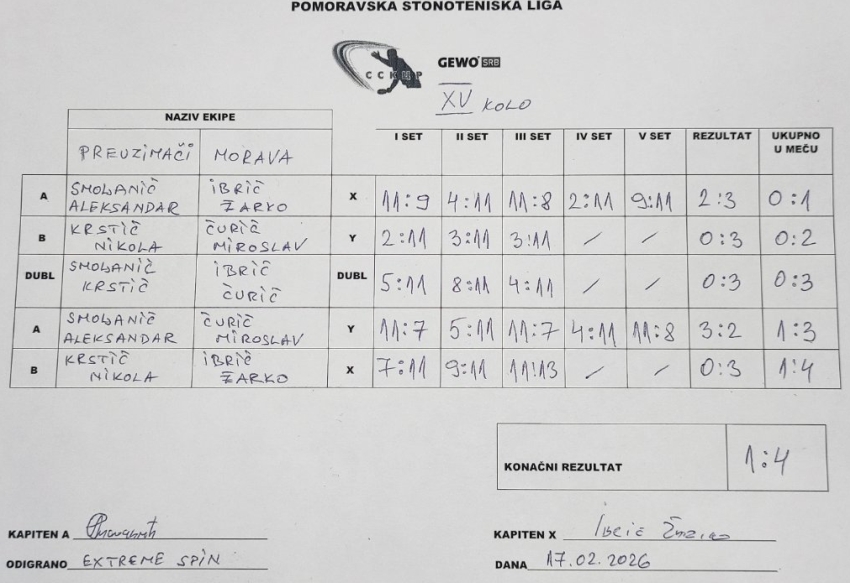 POMORAVSKA STONOTENISKA LIGA
ССКЦР
GEWO SRB
XV KOLO
NAZIV EKIPE I SET II SET III SET IV SET V SET REZULTAT UKUPNO U MEČU
PREUZIMAČI MORAVA
A SMOLJANIČ ALEKSANDAR IBRIČ ŽARKO X 11:9 4:11 11:8 2:11 9:11 2:3 0:1
B KRSTIČ NIKOLA ČURIČ MIROSLAV Y 2:11 3:11 3:11 / / 0:3 0:2
DUBL SMOLJANIČ KRSTIČ IBRIČ ČURIČ DUBL 5:11 8:11 4:11 / / 0:3 0:3
A SMOLJANIČ ALEKSANDAR ČURIČ MIROSLAV Y 11:7 5:11 11:7 4:11 11:8 3:2 1:3
B KRSTIČ NIKOLA IBRIČ ŽARKO X 7:11 9:11 11:13 / / 0:3 1:4
KONAČNI REZULTAT 1:4
KAPITEN A
KAPITEN X Ibrić
ODIGRANO EXTREME SPIN
DANA 17.02.2026